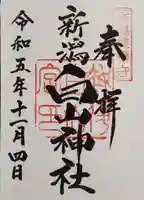 奉拝
新潟白山神社
令和五年十一月四日